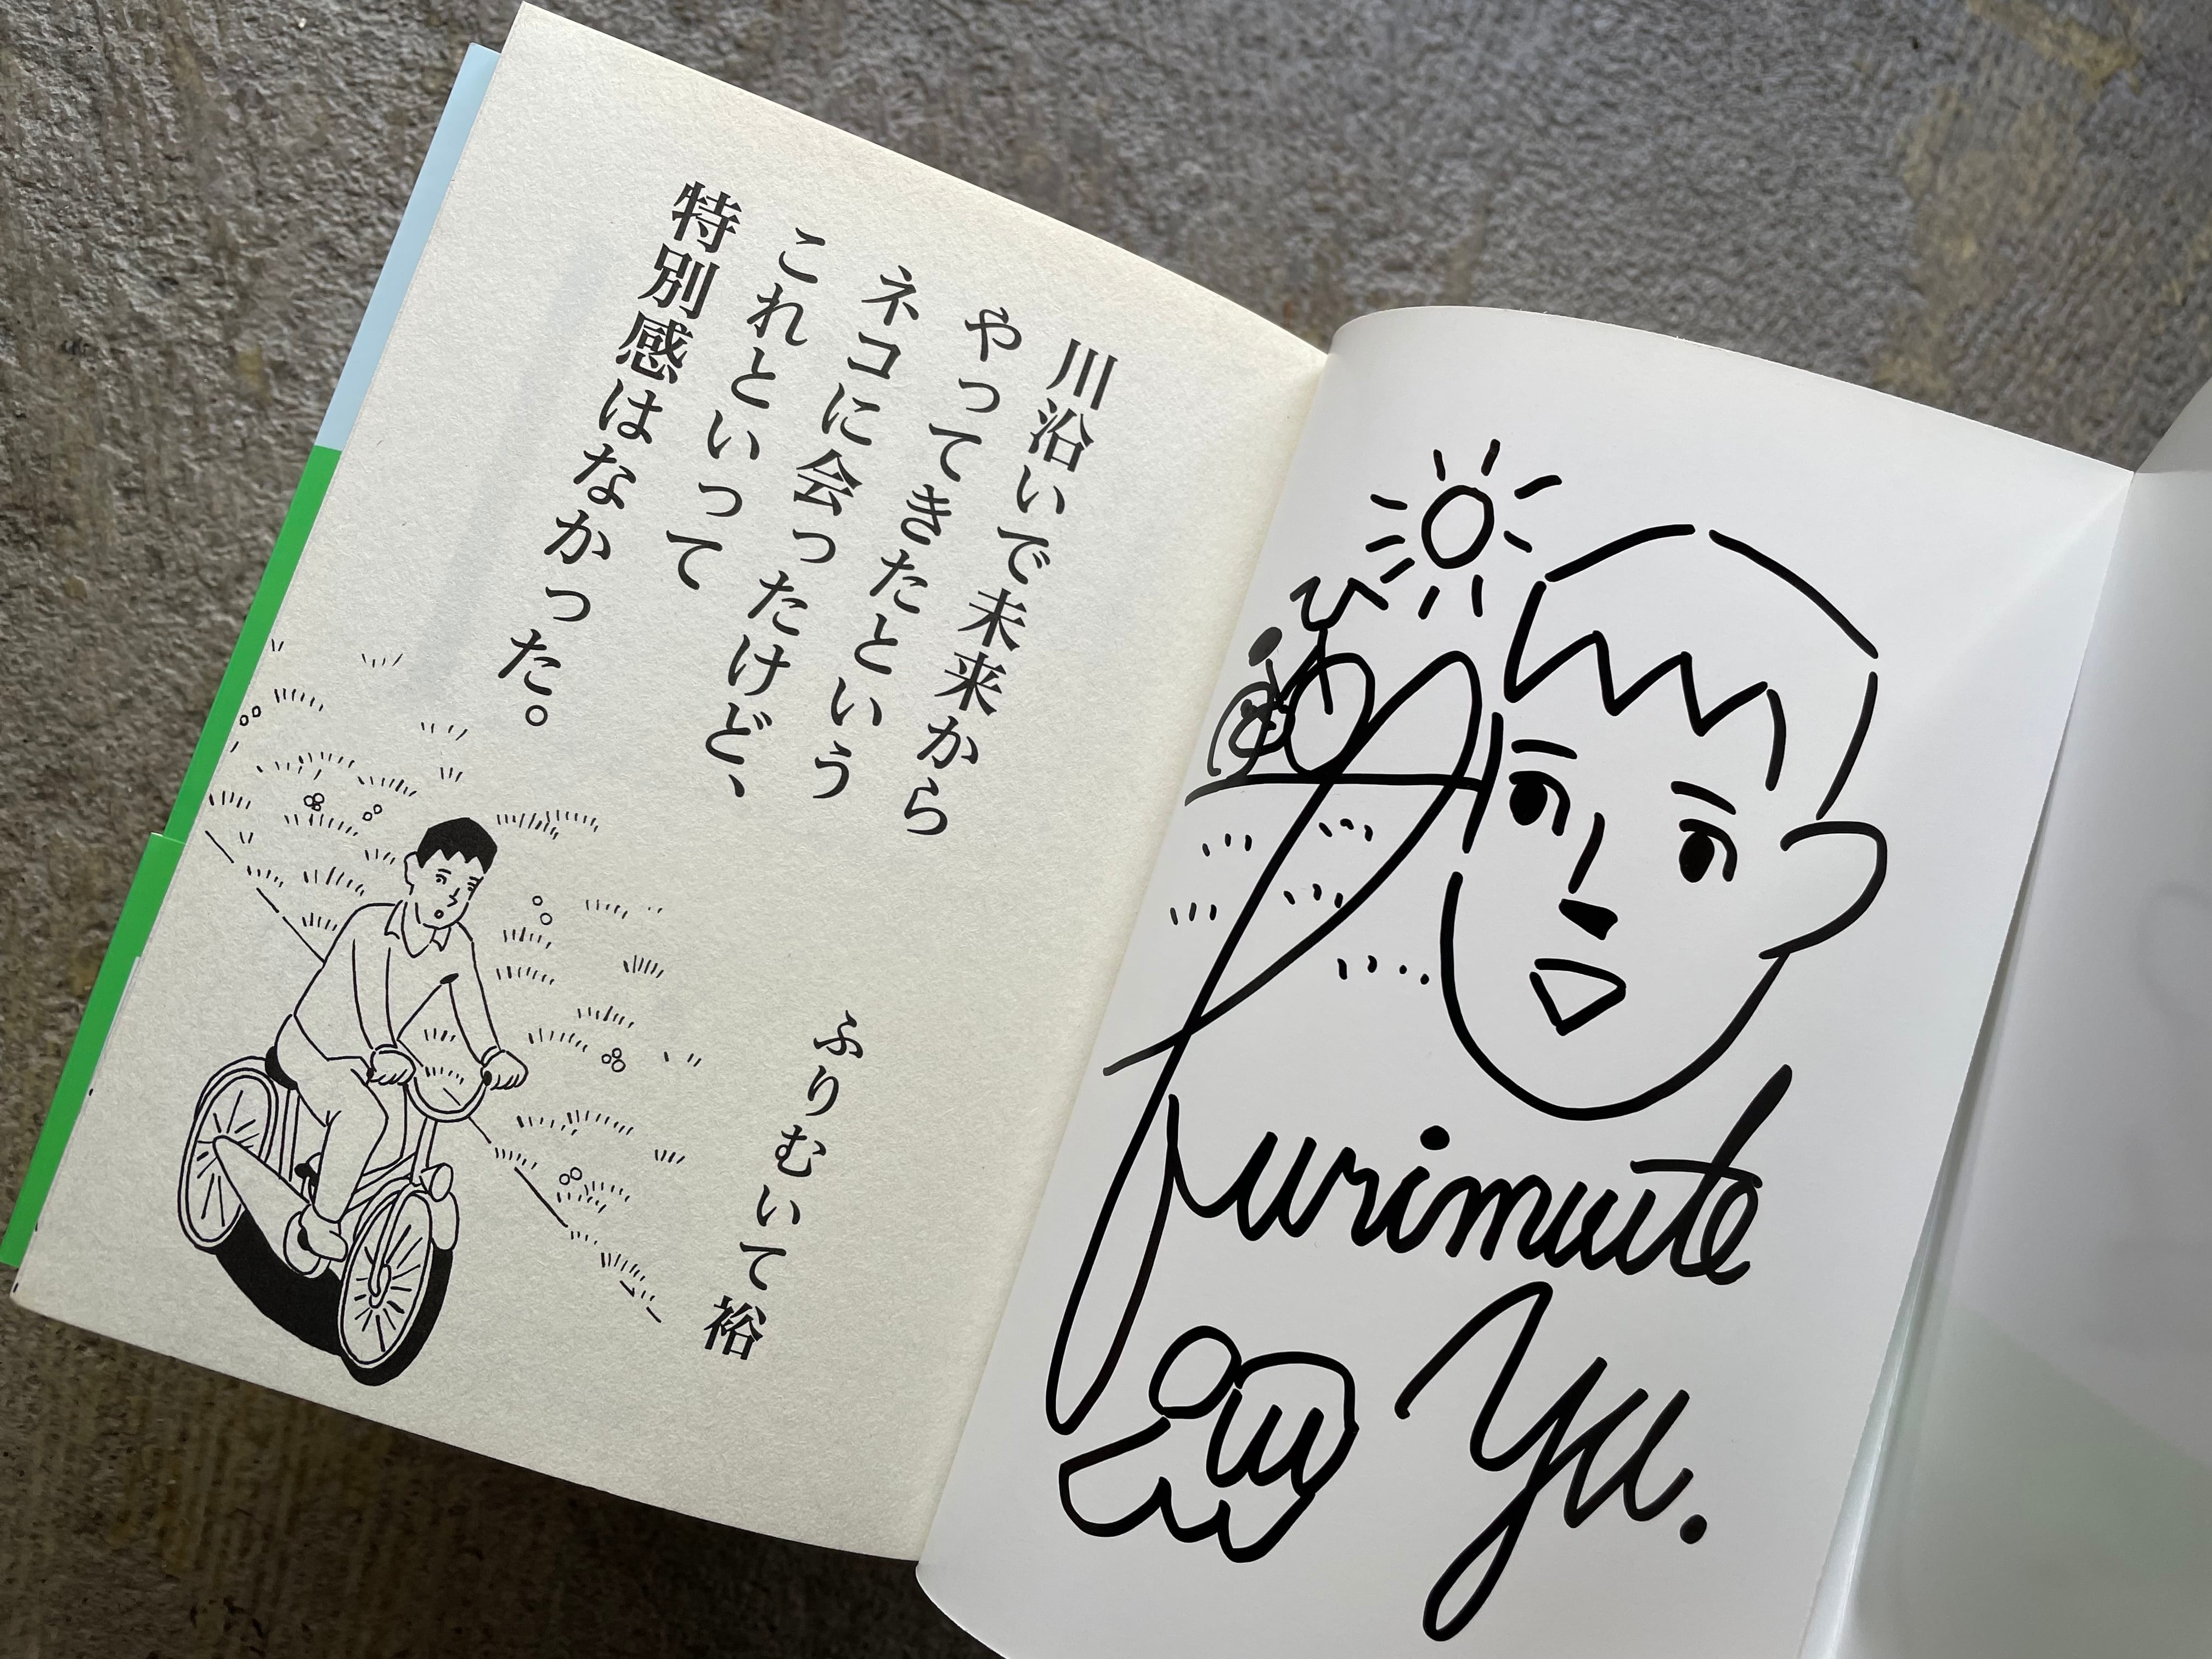 川沿いで未来から
やってきたという
ネコに会ったけど、
これといって
特別感はなかった。
ふりむいて裕
furimuite
Yu.